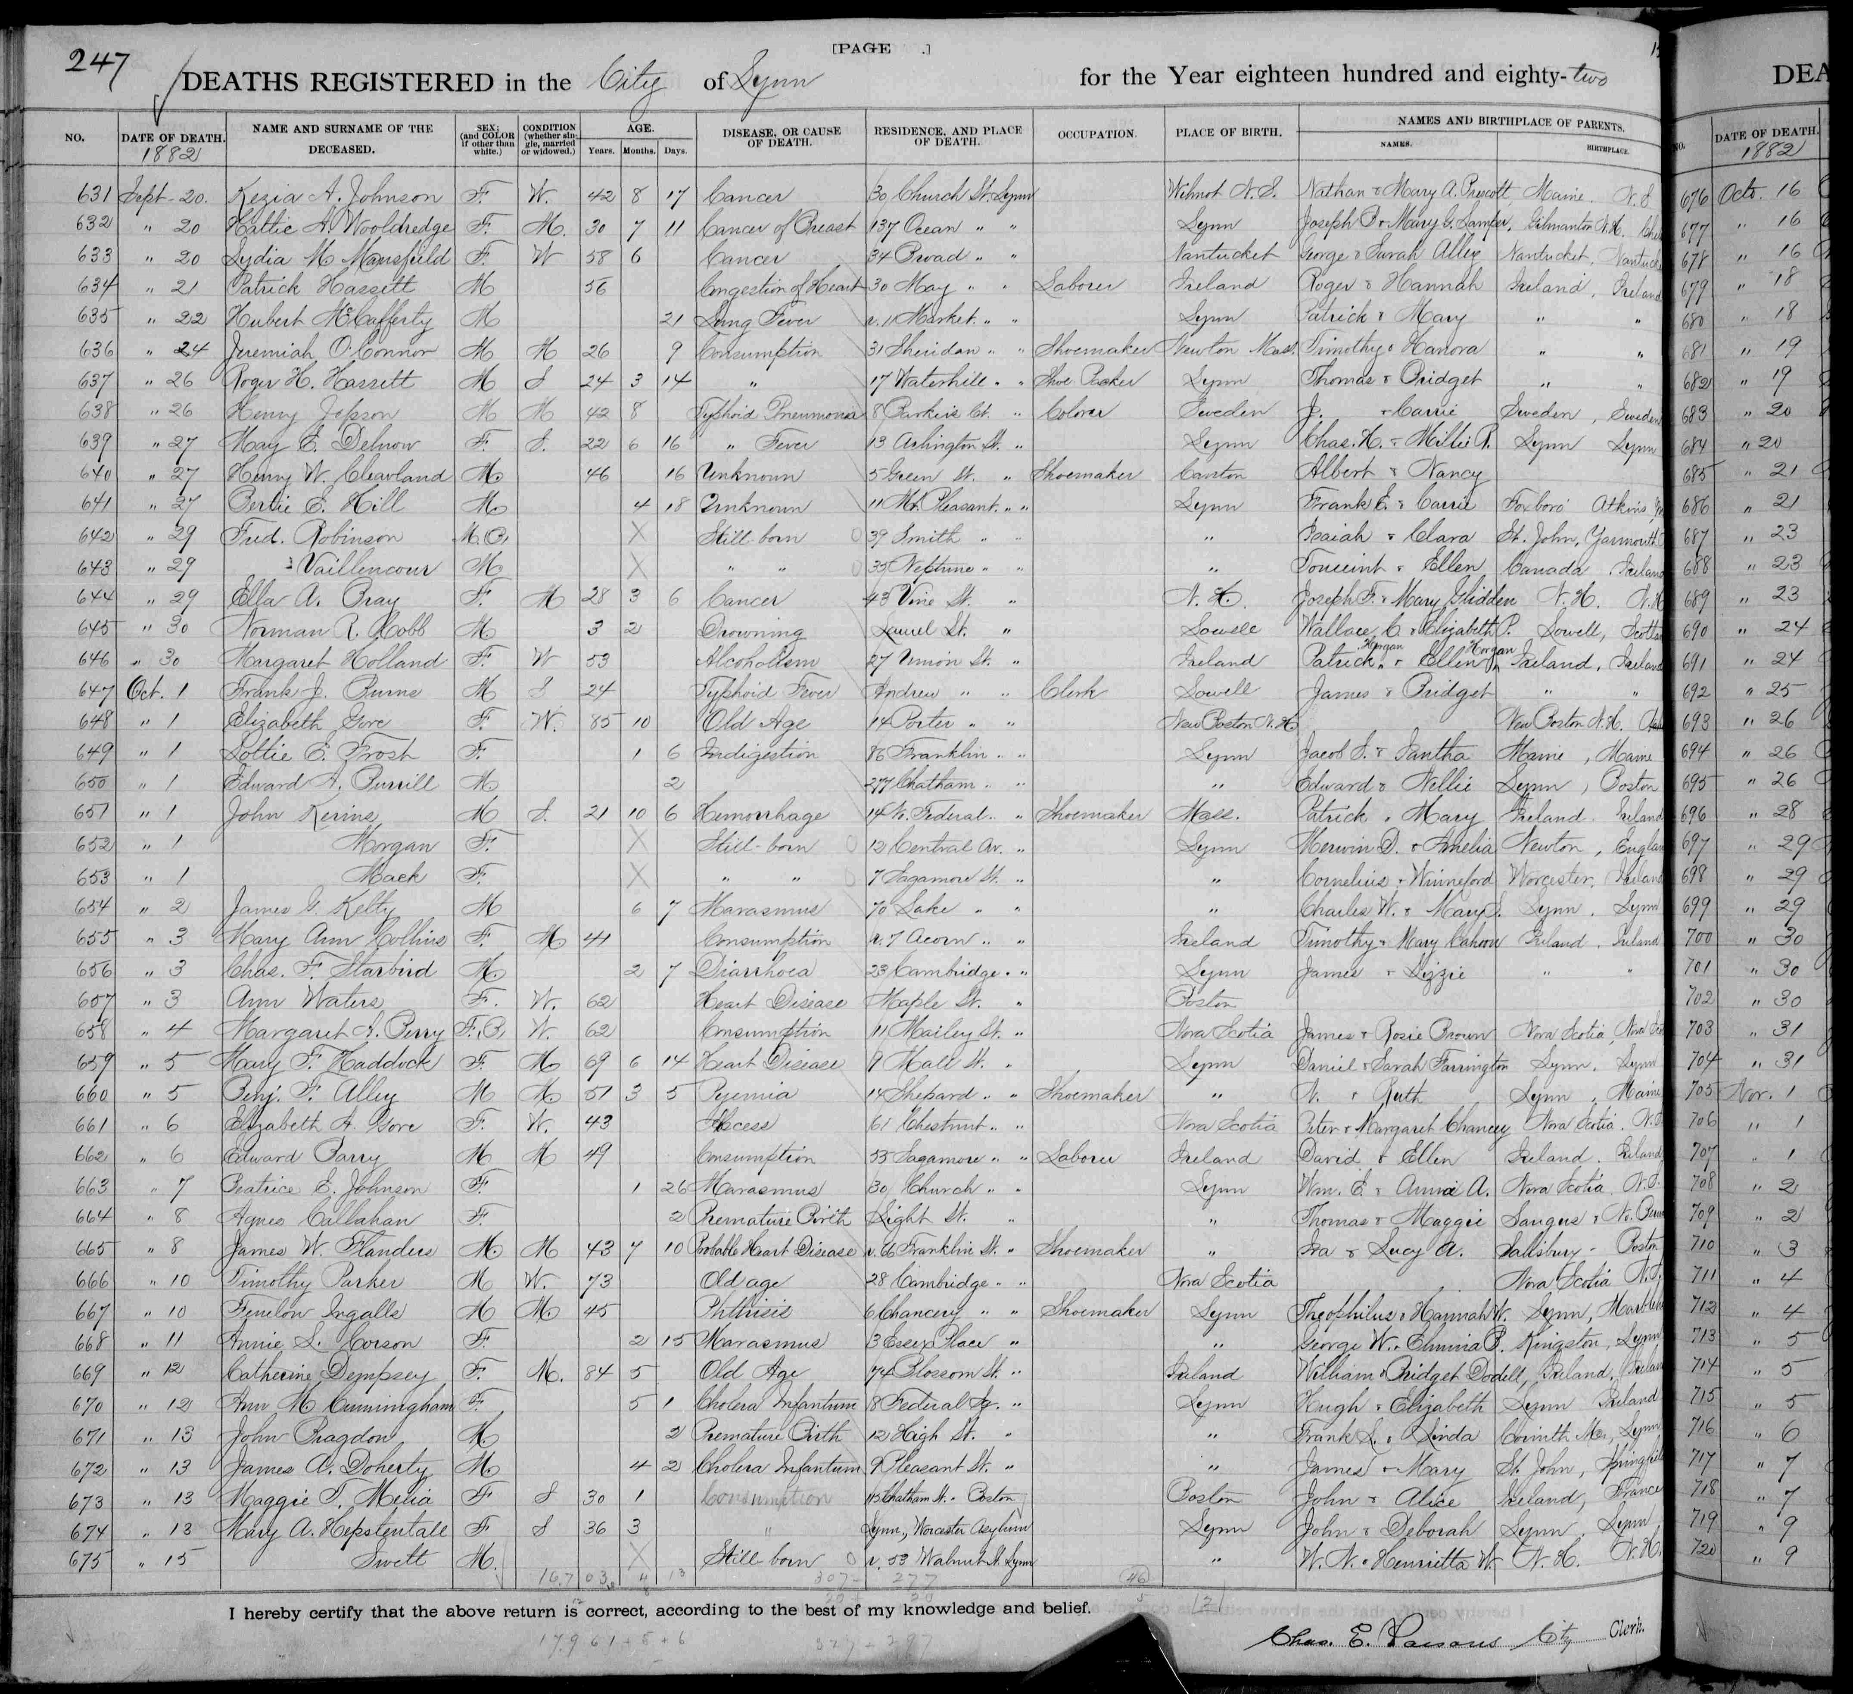 247
[PAGE .]
DEATHS REGISTERED in the City of Lynn for the Year eighteen hundred and eighty-two
NO. DATE OF DEATH. 1882 NAME AND SURNAME OF THE DECEASED. SEX; (and COLOR if other than white.) CONDITION (whether single, married or widowed.) AGE. Years. Months. Days. DISEASE, OR CAUSE OF DEATH. RESIDENCE, AND PLACE OF DEATH. OCCUPATION. PLACE OF BIRTH. NAMES AND BIRTHPLACE OF PARENTS. NAMES. BIRTHPLACE.
631 Sept. 20. Kezia A. Johnson F. W. 42 8 17 Cancer 30 Church St. Lynn Wilmot N.S. Nathan & Mary A. Prescott Maine. N.S
632 " 20 Hattie A. Wooldredge F. M. 30 7 11 Cancer of Breast 137 Ocean " " Lynn Joseph P. & Mary G. Gilmanton N.H.
633 " 20 Lydia M Mansfield F. W 58 6 Cancer 34 Broad " " Nantucket George & Sarah Alley Nantucket, Nantucke
634 " 21 Patrick Hassett M 56 Congestion of Heart 30 May " " Laborer Ireland Roger & Hannah Ireland, Ireland
635 " 22 Hubert McCafferty M 21 Lung Fever r. 11 Market " " Lynn Patrick & Mary " "
636 " 24 Jeremiah O'Connor M M 26 9 Consumption 31 Sheridan " " Shoemaker Newton Mass. Timothy & Hanora " "
637 " 26 Roger H. Hassett M S 24 3 14 " 17 Waterhill " " Shoe Packer Lynn Thomas & Bridget " "
638 " 26 Henry Jepson M M 42 8 Typhoid Pneumonia 8 Parker's Ct. " Colorer Sweden J. & Carrie Sweden, Sweden
639 " 27 May E. Delnow F. S. 22 6 16 " Fever 13 Arlington St. " Lynn Chas. H. & Millie R. Lynn Lynn
640 " 27 Henry W. Cleavland M. 46 16 Unknown 5 Green St. " Shoemaker Canton Albert & Nancy
641 " 27 Bertie E. Hill M. 4 18 Unknown 11 Mt. Pleasant. " " Lynn Frank E. & Carrie Foxboro Atkins,
642 " 29 Fred. Robinson M. B. X Still-born 0 39 Smith " " " Isaiah & Clara St. John, Yarmouth
643 " 29 Vaillencour M X " " 0 35 Neptune " " " Toussint & Ellen Canada, Ireland
644 " 29 Ella A. Bray F. M 28 3 6 Cancer 43 Vine St. " N.H. Joseph F. & Mary Glidden N.H. N.H
645 " 30 Norman R. Cobb M. 3 2 Drowning Laurel St. " Lowell Wallace C. & Elizabeth P. Lowell, Scotlan
646 " 30 Margaret Holland F. W 53 Alcoholism 27 Union St. " Ireland Patrick Horgan & Ellen Horgan Ireland, Ireland
647 Oct. 1 Frank J. Burns M S 24 Typhoid Fever Andrew " " Clerk Lowell James & Bridget " "
648 " 1 Elizabeth Gove F. W. 85 10 Old Age 14 Porter " " New Boston N.H. New Boston N.H.
649 " 1 Lottie E. Frost F. 1 6 Indigestion 86 Franklin " " Lynn Jacob S. & Iantha Maine, Maine
650 " 1 Edward A. Burrill M 2 277 Chatham " " " Edward & Nellie Lynn, Boston
651 " 1 John Kerins M S. 21 10 6 Hemorrhage 14 N. Federal. " Shoemaker Mass. Patrick, Mary Ireland. Ireland
652 " 1 Morgan F. X Still-born 0 12 Central Av. " Lynn Merwin D. & Amelia Newton, Englan
653 " 1 Mack F. X " " 0 7 Sagamore St. " " Cornelius & Winneford Worcester, Ireland
654 " 2 James G. Kelty M 6 7 Marasmus 70 Lake " " " Charles W. & Mary S. Lynn. Lynn
655 " 3 Mary Ann Collins F. M 41 Consumption r. 7 Acorn " " Ireland Timothy & Mary Cahoon Ireland. Ireland
656 " 3 Chas. F. Starbird M. 2 7 Diarrhoea 23 Cambridge " " Lynn James & Lizzie " "
657 " 3 Ann Waters F. W. 62 Heart Disease Maple St. " Boston
658 " 4 Margaret A. Perry F. B. W. 62 Consumption 11 Mailey St. " Nova Scotia James & Rosie Brown Nova Scotia, Nova
659 " 5 Mary F. Haddock F. M 69 6 14 Heart Disease 9 Mall St. " Lynn Daniel & Sarah Farrington Lynn. Lynn
660 " 5 Benj. F. Alley M M 51 3 5 Pyemia 14 Shepard " " Shoemaker " N. & Ruth Lynn, Maine
661 " 6 Elizabeth A. Gove F. W. 43 Abscess 61 Chestnut " " Nova Scotia Peter & Margaret Chancey Nova Scotia. N.S
662 " 6 Edward Parry M M 49 Consumption 53 Sagamore " " Laborer Ireland David & Ellen Ireland. Ireland
663 " 7 Beatrice E. Johnson F. 1 26 Marasmus 30 Church " " Lynn Wm. E. & Annie A. Nova Scotia. N.S.
664 " 8 Agnes Callahan F. 2 Premature Birth Light St. " " Thomas & Maggie Saugus &
665 " 8 James W. Flanders M. M 43 7 10 Probable Heart Disease r. 86 Franklin St. " Shoemaker " Ira & Lucy A. Salisbury - Boston
666 " 10 Timothy Parker M W. 73 Old age 28 Cambridge " " Nova Scotia Nova Scotia N.S.
667 " 10 Fenelon Ingalls M M. 45 Phthisis 6 Chancery " " Shoemaker Lynn Theophilus & Hannah W. Lynn, Marbleh
668 " 11 Annie L. Corson F. 2 15 Marasmus 3 Essex Place " " George W. & Elmina B. Kingston, Lynn
669 " 12 Catherine Dempsey F. M. 84 5 Old Age 74 Blossom St. " Ireland William & Bridget Dodell, Ireland, Irelan
670 " 12 Ann M Cunningham F. 5 1 Cholera Infantum 8 Federal Sq. " Lynn Hugh & Elizabeth Lynn Ireland
671 " 13 John Bragdon M 2 Premature Birth 12 High St. " " Frank L. & Linda Corinth Me., Lynn
672 " 13 James A. Doherty M. 4 2 Cholera Infantum 9 Pleasant St. " " James & Mary St. John, Springfiel
673 " 13 Maggie T. Melia F S 30 1 Consumption 43 Chatham St. Boston Boston John & Alice Ireland, France
674 " 13 Mary A. Hepstentall F S 36 3 " Lynn, Worcester Asylum Lynn John & Deborah Lynn. Lynn
675 " 15 Swett M. X Still-born 0 r. 53 Walnut St. Lynn " W. N. & Henrietta W. N.H. N.H.
307 277 46
I hereby certify that the above return is correct, according to the best of my knowledge and belief.
17961 + 5 + 6 327 + 297
Chas. E. Parsons City Clerk.
DEA
NO. DATE OF DEATH. 1882
676 Octo. 16
677 " 16
678 " 16
679 " 18
680 " 18
681 " 19
682 " 19
683 " 20
684 " 20
685 " 21
686 " 21
687 " 23
688 " 23
689 " 23
690 " 24
691 " 24
692 " 25
693 " 26
694 " 26
695 " 26
696 " 28
697 " 29
698 " 29
699 " 29
700 " 30
701 " 30
702 " 30
703 " 31
704 " 31
705 Nov. 1
706 " 1
707 " 1
708 " 2
709 " 2
710 " 3
711 " 4
712 " 4
713 " 5
714 " 5
715 " 5
716 " 6
717 " 7
718 " 7
719 " 9
720 " 9